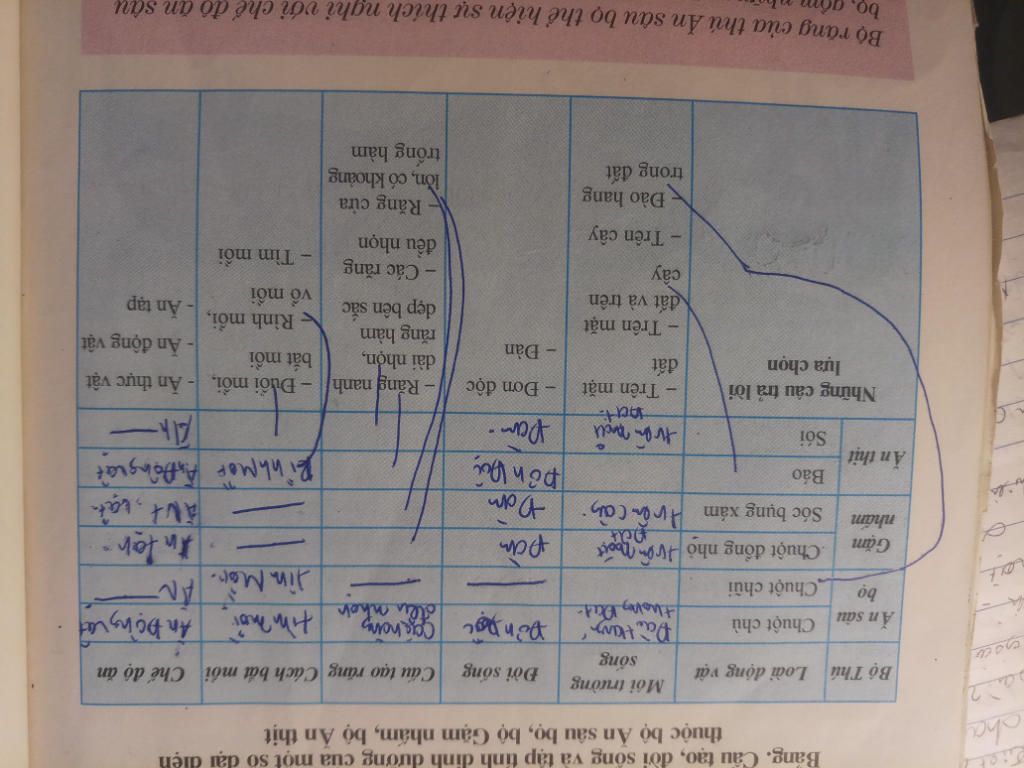 Bảng. Cấu tạo, đời sống và tập tính dinh dưỡng của một số đại diện
thuộc bộ Ăn sâu bọ, bộ Gặm nhấm, bộ Ăn thịt
Bộ Thú
Loài động vật
Môi trường
sống
Đời sống
Cấu tạo răng
Cách bắt mồi
Chế độ ăn
Ăn sâu
bọ
Chuột chù
Đơn độc
Các răng
đều nhọn
tìm mồi
Ăn Động vật
Chuột chũi
tìm Mồi
Gặm
nhấm
Chuột đồng nhỏ
trên mặt
Đất
Đàn
Ăn tạp
Sóc bụng xám
trên cây
Đàn
Ăn thịt
Báo
Đơn Độc
Rình Mồi
Ăn Động vật
Sói
trên mặt
Đất
Đàn
Những câu trả lời
lựa chọn
– Trên mặt
đất
– Trên mặt
đất và trên
cây
– Trên cây
– Đào hang
trong đất
– Đơn độc
– Đàn
– Răng nanh
dài nhọn,
răng hàm
dẹp bên sắc
– Các răng
đều nhọn
– Răng cửa
lớn, có khoảng
trống hàm
– Đuổi mồi,
bắt mồi
– Rình mồi,
vồ mồi
– Tìm mồi
- Ăn thực vật
- Ăn động vật
- Ăn tạp
Bộ răng của thú Ăn sâu bọ thể hiện sự thích nghi với chế độ ăn sâu